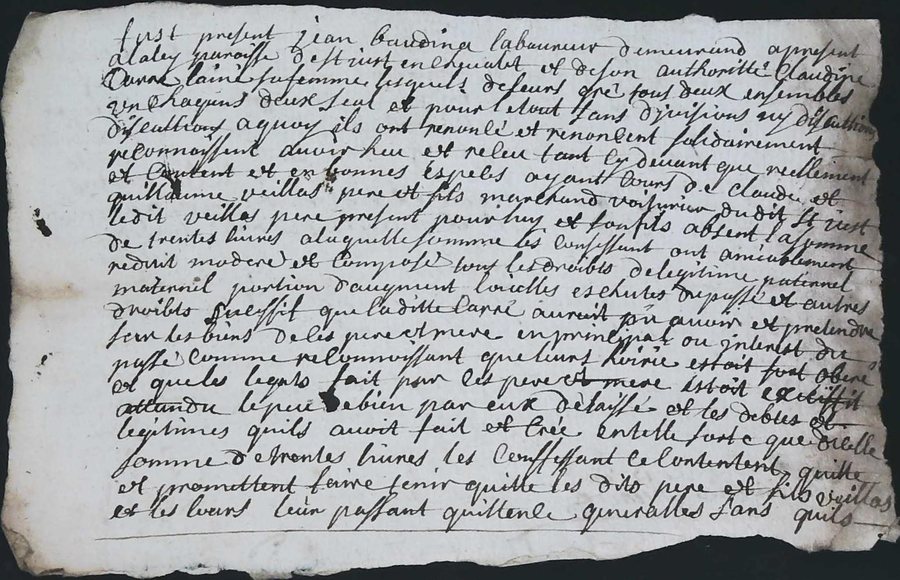 fust present jean baudina laboureur demeurand apresent
alaley paroisse destiust en chevalet et de son authoritté Claudine
Carra laine sa femme lesquels de leurs gré tous deux ensembles
un chaquns deux seul et pour etout sans divisions ny discution
discuttions aquoy ils ont renoncé et renoncent solidairement
reconnoissent avoir heu et releu tant cy devant que reellement
et Contant et en bonnes espeles ayant Cours de claude et
guilliaume veillas pere et fils marchand voiturier du dit St just
ledit veillas pere present pour luy et son fils absent la somme
de trentes livres alaquelle somme les Confessant ont amiablement
reduit modere et Composé tous les droibts de legitime paternel
maternel portion daugment loucilles eschutes du passé et autres
droibts suessif que laditte Carra auroit pu avoir et pretendre
sur les biens de les pere et mere en principal ou interest du
passé Comme reconnoissant que leurs hoirie estoit fort obere
et que les legats fait par les pere et mere estoit excessif
attandu le peu de bien par eux délaissé et les debtes et
legitimes quils avoit fait et Creé entelle sorte que dicelle
somme de trentes livres les Confessant Ce Contentent quitte
et promettent faire tenir quitte les dits pere et fils veillas
et les leurs leur passant quittence generalles sans quils